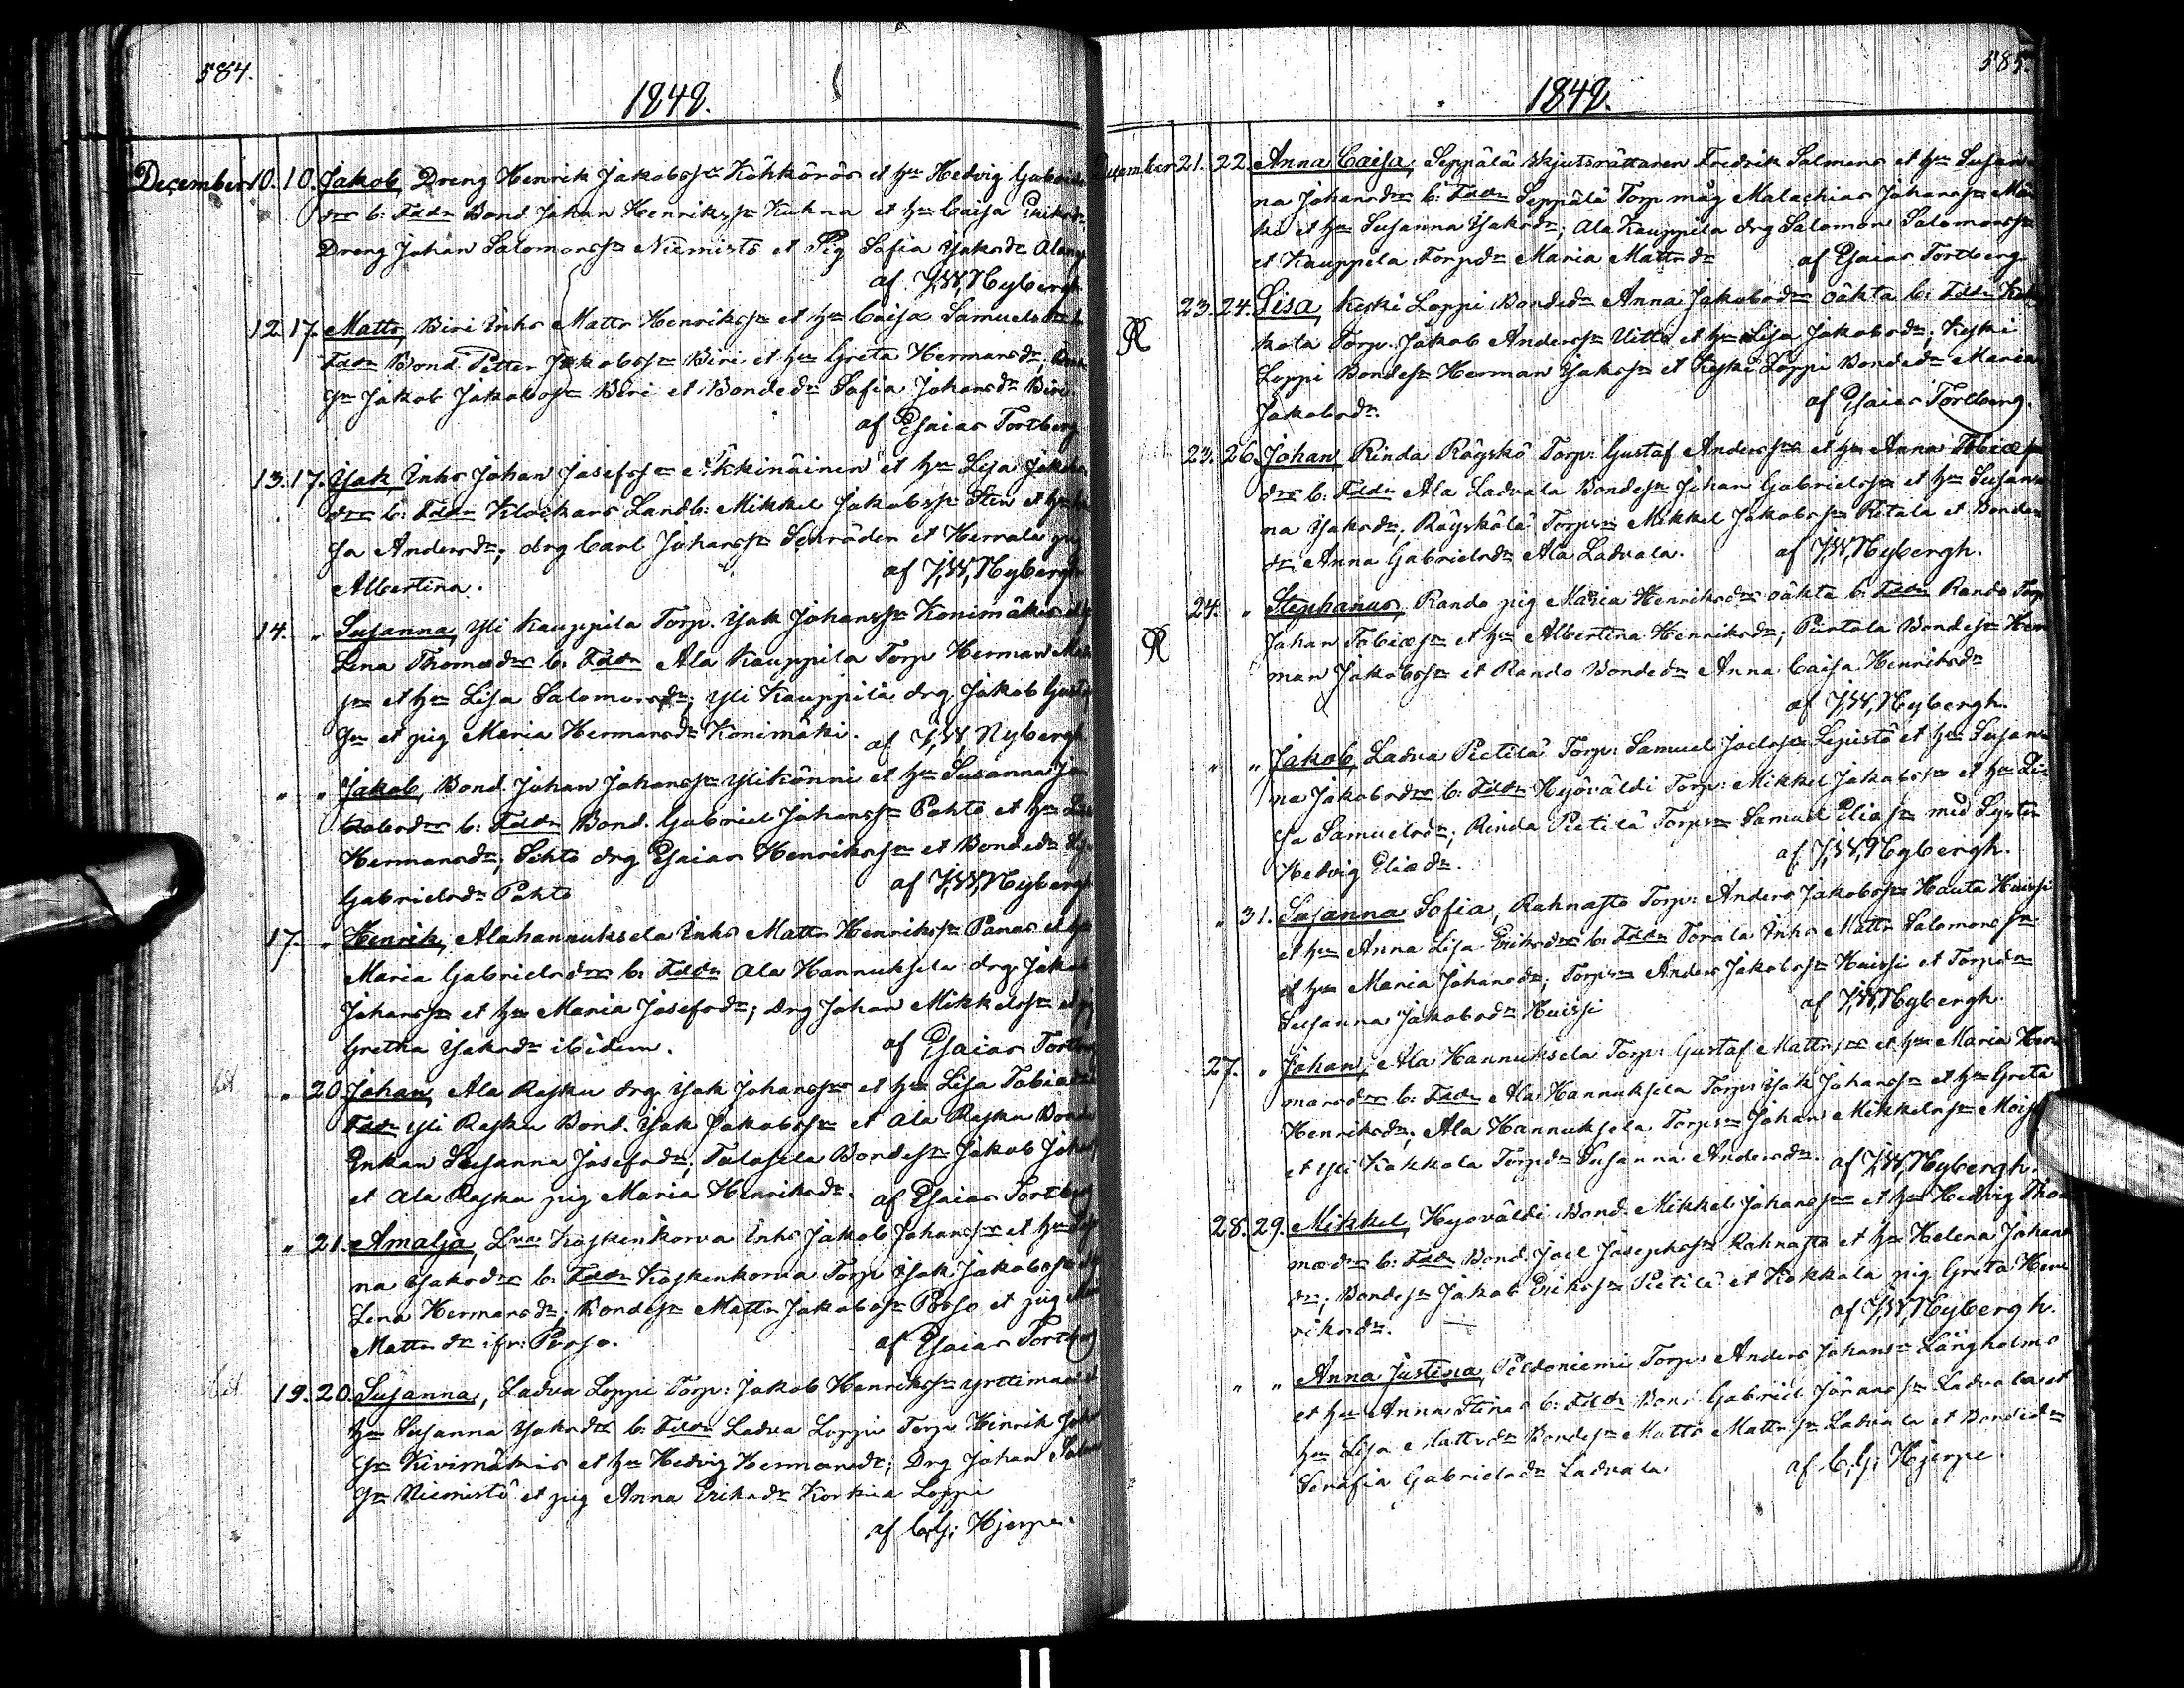 584.
1848.
December 10. 10. Jakob, Dreng Henrik Jakobss:n Köhkörös et h:u Hedvig Gabriels
d:rs b: Fadd:r Bond. Johan Henrikss:n Kuhna et h:u Caisa Eriksd:r
Dreng Johan Salomonss:n Niemistö et Pig Sofia Isaksd:r
af J,W,Nybergh
12. 17. Matts, Biri Inhs Matts Henrikss:n et h:u Caisa Samuelsd:rs b:
Fadd:r Bond. Petter Jakobss:n Biri et h:u Greta Hermansd:r,
s:n Jakob Jakobss:n Biri et Bonded:r Sofia Johansd:r Biri
af Esaias Tortberg
13. 17. Isak, Inhs Johan Josefss:n et h:u Lisa
d:rs b: Fadd:r Klockars Landb: Mikkel Jakobss:n Sten et h:u
sa Andersd:r; drg Carl Johanss:n Senräden et Herrala pig
Albertina. af J,W,Nybergh
14. " Susanna, Yli Kauppila Torp. Isak Johanss:n Konimäkis et h:u
Lena Thomæd:rs b: Fadd:r Ala Kauppila Torp Herman
s:n et h:u Lisa Salomonsd:r; Yli Kauppila drg Jakob
s:n et pig Maria Hermansd:r Konimäki. af J,W,Nybergh
" " Jakob, Bond. Johan Johanss:n Ylikönni et h:u Susanna Ja
kobsd:rs b: Fadd:r Bond. Gabriel Johanss:n Pahto et h:u
Hermansd:r; Sihto drg Esaias Henrikss:n et Bonded:r
Gabrielsd:r Pahto af J,W,Nybergh
17. " Henrik, Alahannuksela Inhs Matts Henrikss:n Panas et h:u
Maria Gabrielsd:rs b: Fadd:r Ala Hannuksela drg. Jakob
Johanss:n et h:u Maria Josefsd:r; drg Johan Mikkelss:n et pig
Gretha Isaksd:r ibidem. af Esaias Tortberg
" 20. Johan, Ala Rajku drg Isak Johanss:ns et h:u Lisa Tobiæd:rs
Fadd:r Yli Rajku Bond. Isak Jakobss:n et Ala Rajku Bonde
Enkan Susanna Josefsd:r; Talasela Bondes:n Jakob Johans
et Ala Rajku pig Maria Henriksd:r. af Esaias Tortberg
" 21. Amalja, L:va Kaskenkorva Inhs Jakob Johanss:ns et h:u
na Isaksd:rs b: Fadd:r Kaskenkorva Torp Isak Jakobss:n et
Lena Hermansd:r; Bondes:n Matts Jakobss:n Poso et pig
Mattsd:r ifr: Perso. af Esaias Tortberg
19. 20. Susanna, Ladva Loppi Torp: Jakob Henrikss:n Yrttimaas et
h:u Susanna Isaksd:rs b: Fadd:r Ladva Loppi Torp Henrik
s:n Kivimäkis et h:u Hedvig Hermansd:r; Drg Johan
s:n Niemistö et pig Anna Eriksd:r Korkia Loppi
af C,G; Hjerpe.
585.
1848.
December 21. 22. Anna Caisa, Seppälä Skjutsrättaren Fredrik Salmens et h:u Susan
na Johansd:rs b: Fadd:r Seppälä Torp måg Malachias Johanss:n
et h:u Susanna Isaksd:r; Ala Kauppila drg Salomon Salomonss:n
et Kauppila Torpd:r Maria Mattsd:r af Esaias Tortberg
23. 24. Lisa, Keski Loppi Bonded:r Anna Jakobsd:rs oäkta b: Fadd:r Kok
kola Torp. Jakob Anderss:n Uitto et h:u Lisa Jakobsd:r; Keski
Loppi Bondes:n Herman Isakss:n et Keski Loppi Bonded:r Maria
Jakobsd:r. af Esaias Tortberg.
23. 26. Johan, Rinda Röyskö Torp: Gustaf Anderss:ns et h:u Anna Tobiæ
d:rs b: Fadd:r Ala Ladvala Bondes:n Johan Gabrielss:n et h:u Susan
na Isaksd:r; Röyskölä Torps:n Mikkel Jakobss:n Ritala et Bonde
d:r Anna Gabrielsd:r Ala Ladvala. af J,W,Nybergh.
24. " Stephanus, Rando pig Maria Henriksd:rs oäkta b: Fadd:r Rando Torp
Johan Tobiæs:n et h:u Albertina Henriksd:r; Pirtola Bondes:n Her
man Jakobss:n et Rando Bonded:r Anna Caisa Henriksd:r
af J,W,Nybergh.
" " Jakob, Ladva Pietilä Torp: Samuel Joelss:n Lepistö et h:u Susan
na Jakobsd:rs b: Fadd:r Hyöväldi Torp: Mikkel Jakobss:n et h:u Li
sa Samuelsd:r; Rinda Pietilä Torps:n Samuel Eliæs:n med Syster
Hedvig Eliæd:r. af J,W,Nybergh.
" 31. Susanna Sofia, Rahnasto Torp: Anders Jakobss:n Hauta Huissi
et h:u Anna Lisa Eriksd:rs b: Fadd:r Torala Inhs Matts Salomonss:n
et h:u Maria Johansd:r; Torps:n Anders Jakobss:n Huissi et Torpd:r
Susanna Jakobsd:r Huissi af J,W,Nybergh.
27. " Johan, Ala Hannuksela Torp: Gustaf Mattss:ns et h:u Maria Her
mansd:rs b: Fadd:r Ala Hannuksela Torp: Isak Johanss:n et h:u Greta
Henriksd:r; Ala Hannuksela Torps:n Johan Mikkelss:n
et Yli Kokkola Torpd:r Susanna Andersd:r. af J,W,Nybergh.
28. 29. Mikkel, Hyöväldi Bond. Mikkel Johanss:ns et h:u Hedvig Tho
mæd:rs b: Fadd:r Bond. Joel Josephss:n Rahnasto et h:u Helena Johans
d:r; Bondes:n Jakob Erikss:n Pietilä et Kokkala pig Greta Hen
riksd:r. af J,W,Nybergh.
" " Anna Justina, Peldoniemi Torp: Anders Johanss:n Långholms
et h:u Anna Stinas b: Fadd:r Bond Gabriel Jöranss:n Ladvala et
h:u Lisa Mattsd:r Bondes:n Matts Mattss:n Ladvala et Bonded:r
Serafia Gabrielsd:r Ladvala. af C,G; Hjerpe.